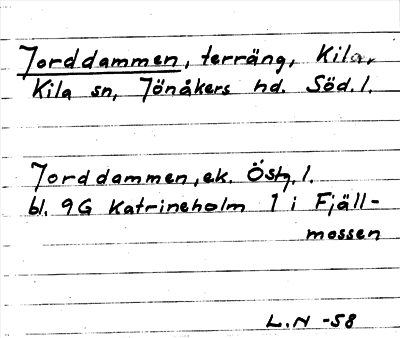 Jorddammen, terräng, Kila,
Kila sn, Jönåkers hd. Söd. l.
Jorddammen, ek. Östg. l.
bl. 9G Katrineholm 1 i Fjäll-
mossen
L.N -58